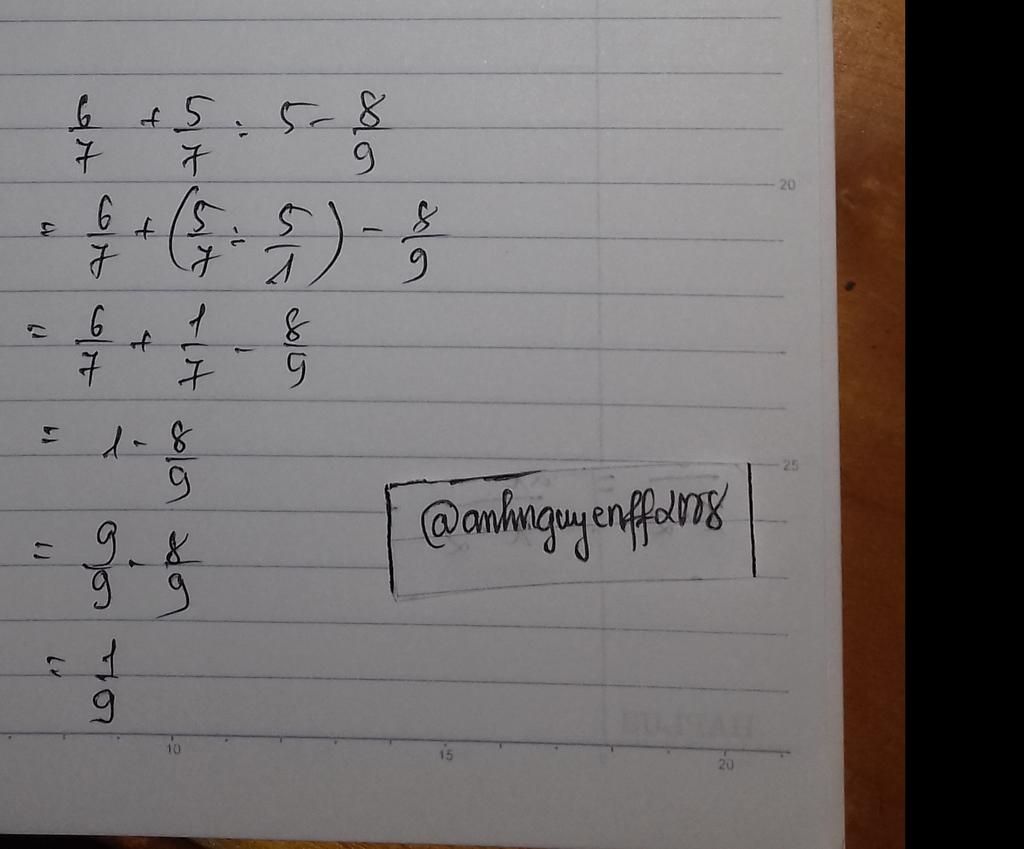 6/7 + 5/7 : 5 - 8/9
= 6/7 + (5/7 : 5/1) - 8/9
= 6/7 + 1/7 - 8/9
= 1 - 8/9
= 9/9 - 8/9
= 1/9
@anhnguyenff2008
20
25
10
15
20